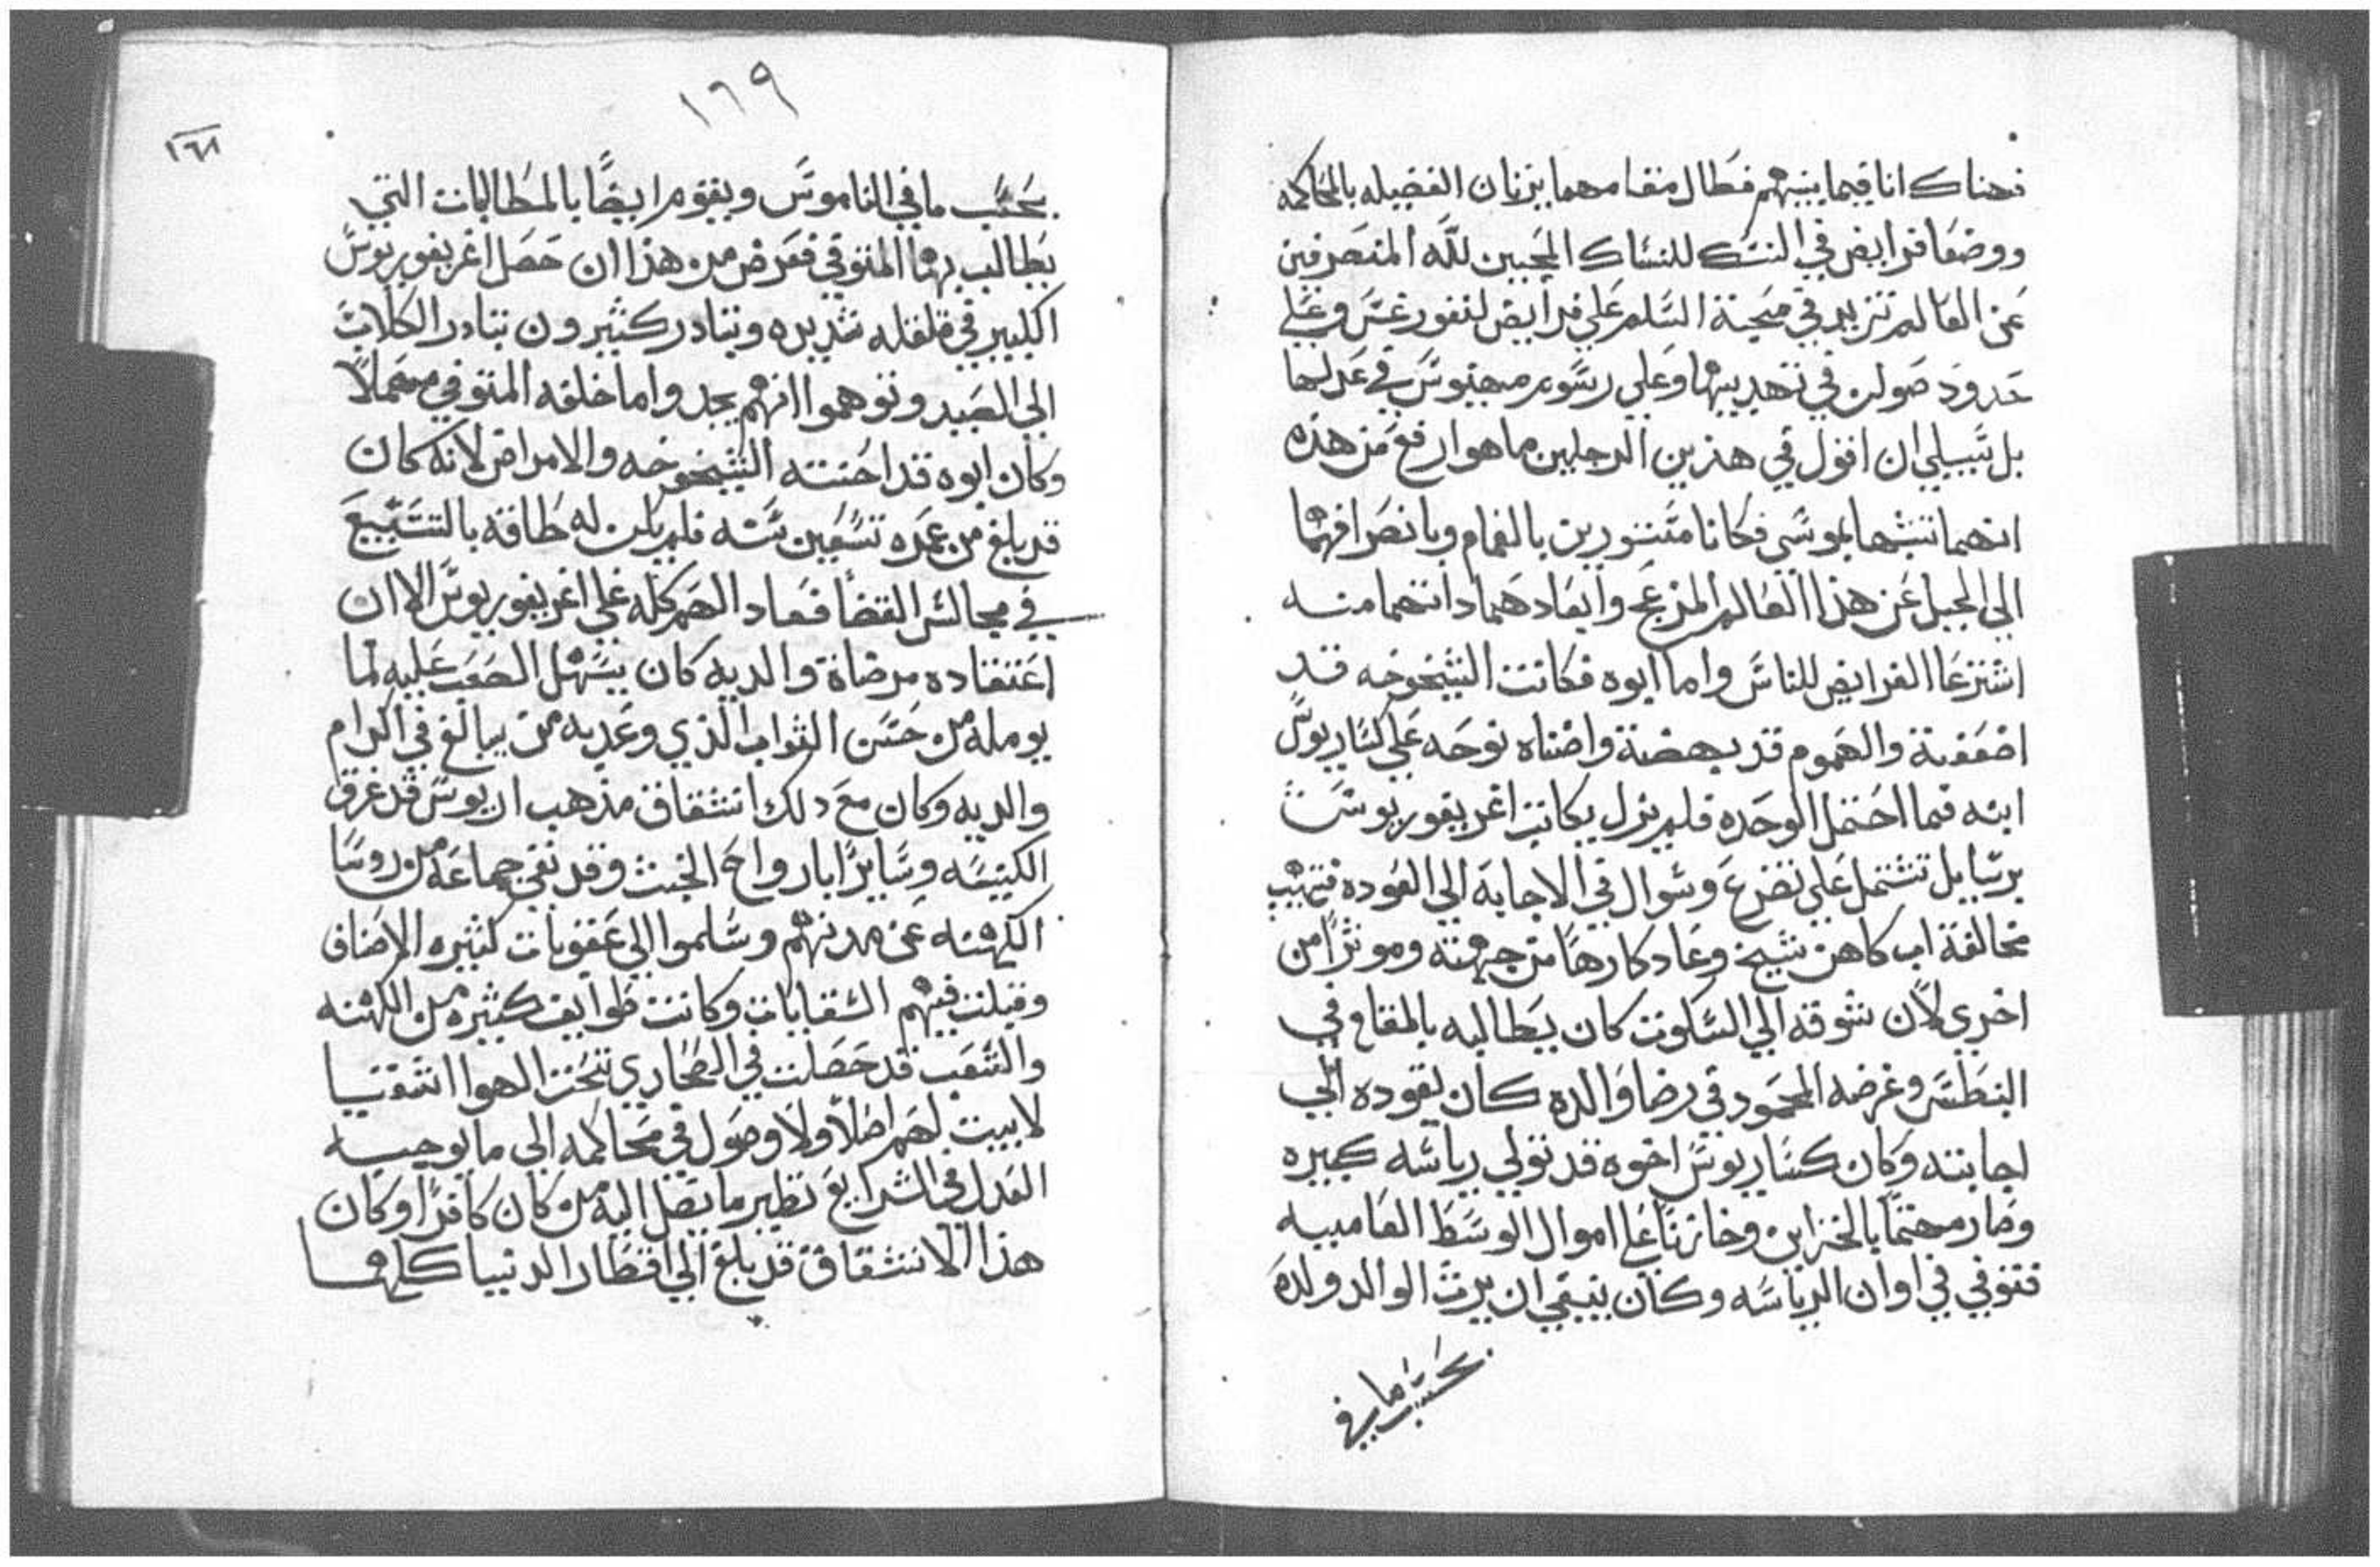 فهناك اناقيما بينهم فطال مقامهما يزنان الفضيله بالمحاكمه
ووضعا فرايض في النسك للنساك المحبين لله المنصرفين
عن العالم تزيد في محبة السلم على فرايض لنفورغس وعلي
حدود صولن في تهديبها وعلي رسوم مينوس في عدلها
بل سبيلي ان اقول في هذين الرجلين ما هو ارفع من هذه
انهما تشبها بموسي فكانا متستورين بالغمام وبانصرافهما
الي الجبل عن هذا العالم المزعج وابعادهما داتهما منه
اشترعا الفرايض للناس واما ابوه فكانت الشيخوخه قد
اضعفته والهموم قد بهضته واضناه نوحه علي كساريوس
ابنه فما احتمل الوحده فلم يزل يكاتب اغريغوريوس
برسايل تشتمل علي تضرع وسوال في الاجابة الي العوده فتهيب
مخالفة اب كاهن شيخ وعاد كارها من جهته وموثرا من
اخري لان شوقه الي السكوت كان يطالبه بالمقام في
البنطس وغرضه المحمود في رضا والده كان يقوده الي
اجابته وكان كساريوس اخوه قد تولي رياسه كبيره
وصار مهتما بالخزاين وخازنا علي اموال الوسط العاميه
فتوفي في اوان الرياسه وكان ينبغي ان يرث الوالد ولده
بحسب ما في
١٦٩
١٦٨
بحسب ما في الناموس ويقوم ايضا بالمطالبات التي
يطالب بهما المتوفي فعرض من هذا ان حصل اغريغوريوس
الكبير في قلقله شديره وتبادر كثيرون تبادر الكلاب
الي الصيد وتوهموا انهم يجدوا ما خلفه المتوفي مهملا
وكان ابوه قد احنته الشيخوخه والامراض لانه كان
قد بلغ من عمره تسعين سنه فلم يكن له طاقه بالتسبيع
في مجالس القضا فعاد الهم كله علي اغريغوريوس الا ان
اعتقاده مرضاة والديه كان يسهل الصعب عليه لما
يومله من حسن الثواب الذي وعد به من يبالغ في اكرام
والديه وكان مع دلك انشقاق مذهب اريوس قد غرق
الكنيسه وسايرا بارواح الخبث وقد نفي جماعه من روسا
الكهنه عن مدنهم وسلموا الي عقوبات كثيره الاصناف
وقبلت فيهم السعايات وكانت طوايف كثيره من الكهنه
والشعب قد حصلت في الصحاري تحت الهوا اشقيا
لا بيت لهم اصلا ولا وصول في محاكمه الي ما يوجبه
العدل في الشرايع نظير ما يصل اليه من كان كافرا وكان
هذا الانشقاق قد بلغ الي اقطار الدنيا كلها